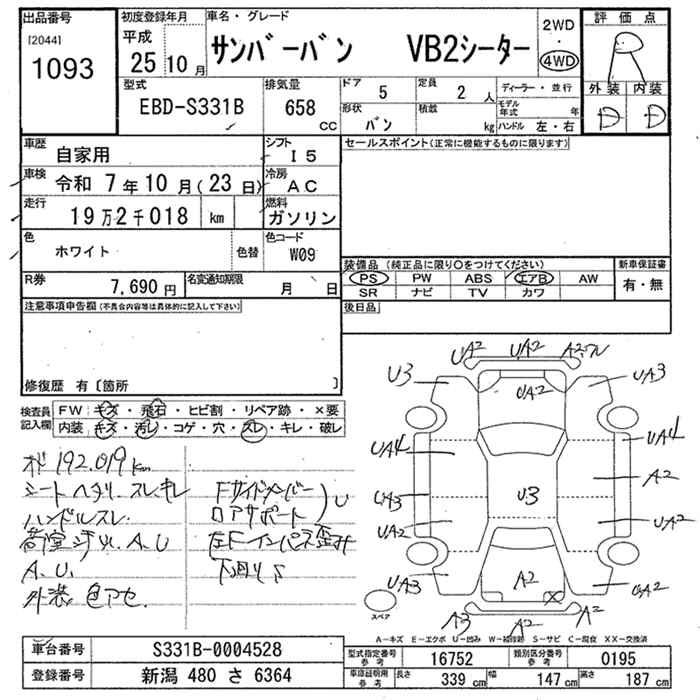 出品番号
[2044]
1093
初度登録年月
平成
25 10月
車名・グレード
サンバーバン VB2シーター
2WD
・
4WD
評価点
R
外装 内装
D D
型式
EBD-S331B
排気量
658 CC
ドア 5
定員 2 人
ディーラー・並行
形状 バン
積載 kg
モデル年式 年
ハンドル 左・右
車歴
自家用
シフト
I5
車検 令和 7年 10月(23日)
冷房
AC
走行
19万2千018 km
燃料
ガソリン
色
ホワイト
色替
色コード
W09
R券
7,690円
名変通知期限
月 日
セールスポイント(正常に機能するものに限ります)
装備品(純正品に限り○をつけてください)
PS PW ABS エアB AW
SR ナビ TV カワ
新車保証書
有・無
後日品
注意事項申告欄(不具合内容等は具体的に記入して下さい)
修復歴 有〔箇所 〕
検査員記入欄
FW キズ・飛石・ヒビ割・リペア跡・×要
内装 キズ・汚レ・コゲ・穴・スレ・キレ・破レ
192.019km
シートヘタリ.スレ.キレ
ハンドルスレ
荷室汚レ.A.U
A.U.
外装色アセ.
Fサイドメンバー
ロアサポート
)U
左Fインパネ歪み
下回りS
UA2 UA2 A2ワレ
U3 UA2 UA3
UA4 UA4
A2
UA3 U3
UA2 UA2
UA3 A2 UA2
×
A3 A2 A2
スペア
A―キズ E―エクボ U―凹み W―補修跡 S―サビ C―腐食 XX―交換済
車台番号 S331B-0004528
登録番号 新潟 480 さ 6364
型式指定番号 参考 16752
類別区分番号 参考 0195
車庫証明用 参考 長さ 339 cm 幅 147 cm 高さ 187 cm